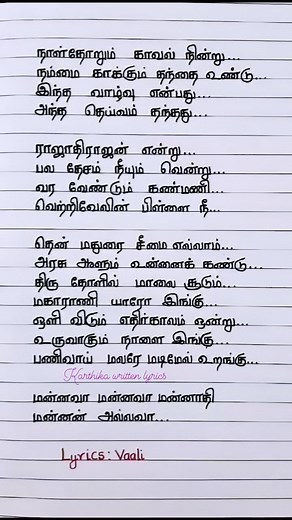 நாள்தோறும் காவல் நின்று...
நம்மை காக்கும் தந்தை உண்டு...
இந்த வாழ்வு என்பது...
அந்த தெய்வம் தந்தது...
ராஜாதிராஜன் என்று...
பல தேசம் நீயும் வென்று...
வர வேண்டும் கண்மணி...
வெற்றிவேலின் பிள்ளை நீ...
தென் மதுரை சீமை எல்லாம்...
அரசு ஆளும் உன்னைக் கண்டு...
திரு தோளில் மாலை சூடும்...
மகாராணி யாரோ இங்கு...
ஒளி விடும் எதிர்காலம் ஒன்று...
உருவாகும் நாளை இங்கு...
பனிவாய் மலரே மடிமேல் உறங்கு...
Karthika written lyrics
மன்னவா மன்னவா மன்னாதி
மன்னன் அல்லவா...
Lyrics: Vaali